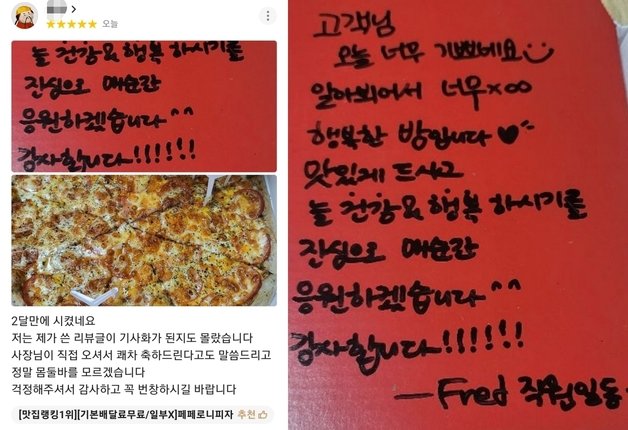 오늘
늘 건강& 행복 하시기를
진심으로 매순간
응원하겠습니다^^
감사합니다!!!!!!
2달만에 시켰네요
저는 제가 쓴 리뷰글이 기사화가 된지도 몰랐습니다
사장님이 직접 오셔서 쾌차 축하드린다고도 말씀드리고
정말 몸둘바를 모르겠습니다
걱정해주셔서 감사하고 꼭 번창하시길 바랍니다
[맛집랭킹1위][기본배달료무료/일부X]페페로니피자 추천
고객님
오늘 너무 기쁘네요
알아뵈어서 너무×∞
행복한 밤입니다♥
맛있게 드시고
늘 건강& 행복 하시기를
진심으로 매순간
응원하겠습니다^^
감사합니다!!!!!!
—Fred 직원일동